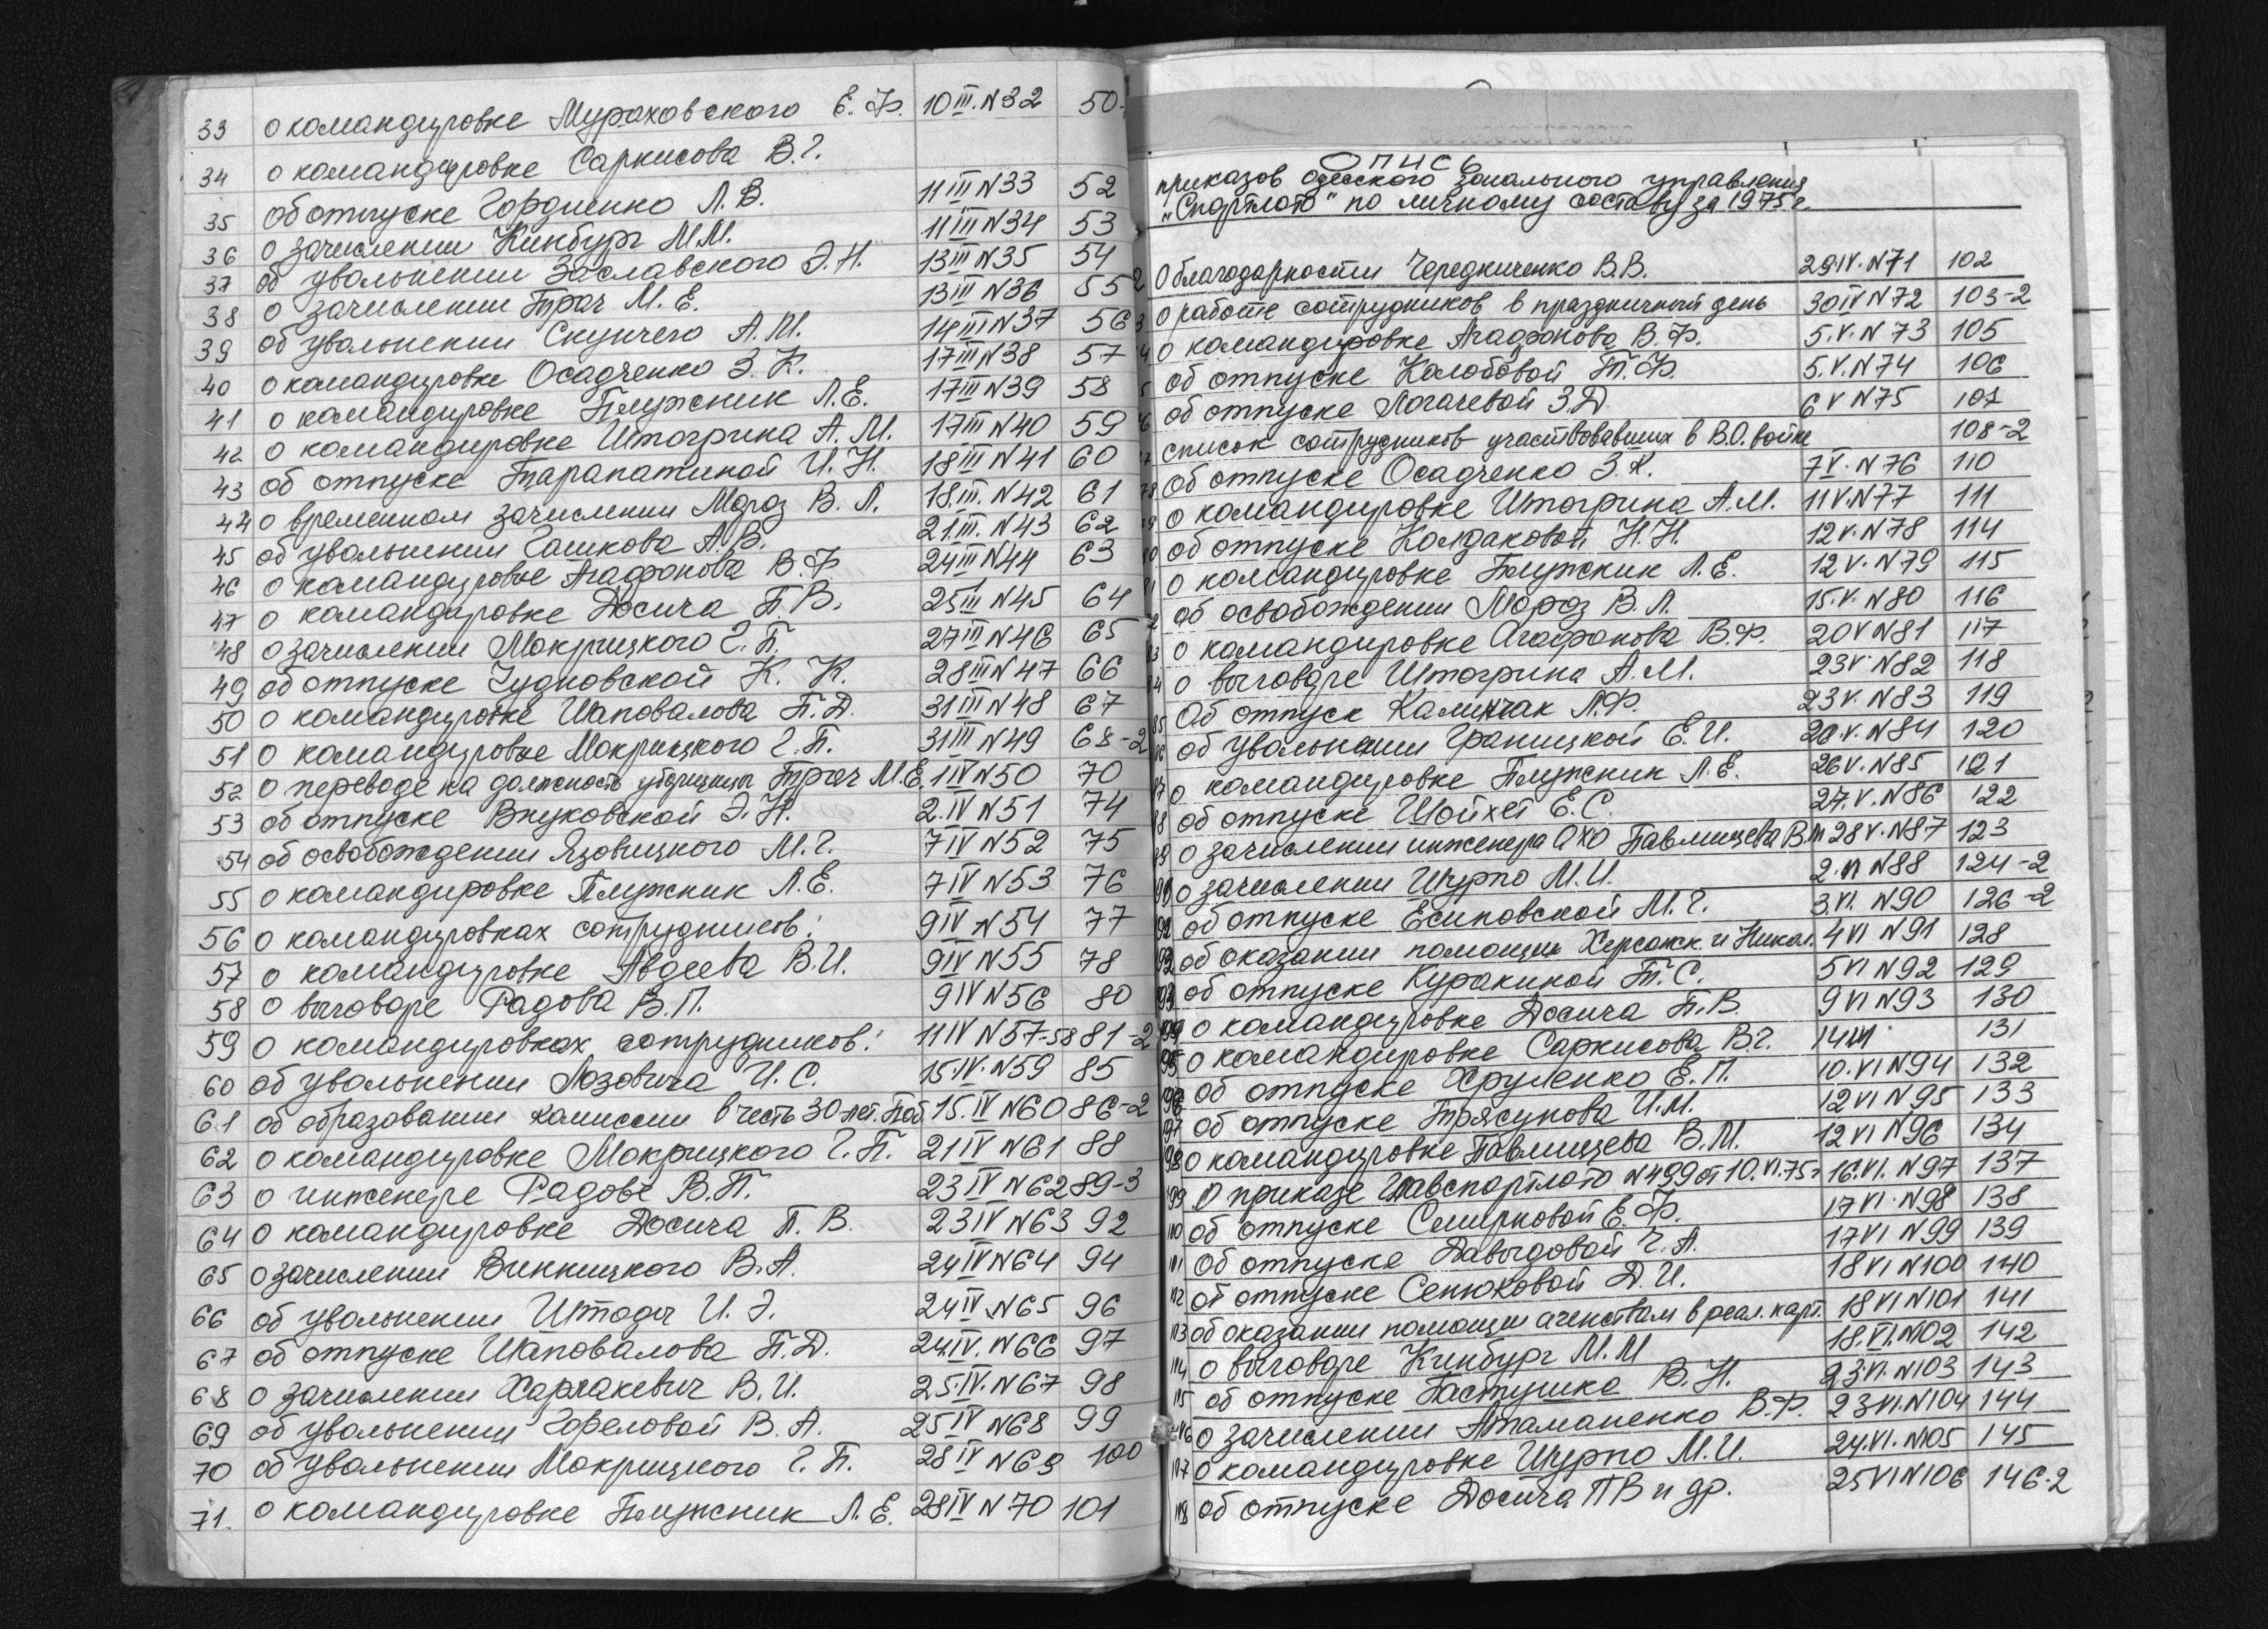 33 о командировке Мураховского Е. Ф. 10 III. N32 50-
34 о командировке Саркисова В.Г.
35 об отпуске Гордиенко Л. В. 11 III N33 52
36 о зачислении Кинбург М.М. 11 III N34 53
37 об увольнении Заславского Э. Н. 13 III N35 54
38 о зачислении Трач М. Е. 13 III N36 55
39 об увольнении Скупчего А. М. 14 III N37 56
40 о командировке Осадченко З. К. 17 III N38 57
41 о командировке Плужник Л.Е. 17 III N39 58
42 о командировке Штогрина А. М. 17 III N40 59
43 об отпуске Тарапатиной И. Н. 18 III N41 60
44 о временном зачислении Мороз В. Л. 18.III. N42 61
45 об увольнении Гашкова А. В. 21.III. N43 62
46 о командировке Агафонова В. Ф 24 III N44 63
47 о командировке Досича П. В. 25 III N45 64
48 о зачислении Мокрицкого Г. П. 27 III N46 65
49 об отпуске Чудновской К. К. 28 III N47 66
50 о командировке Шаповалова П. Д. 31 III N48 67
51 о командировке Мокрицкого Г. П. 31 III N49 68-2
52 о переводе на должность уборщицы Трач М.Е. 1 IV N50 70
53 об отпуске Внуковской Э. Н. 2. IV N51 74
54 об освобождении Язовицкого М. Г. 7 IV N52 75
55 о командировке Плужник Л. Е. 7 IV N53 76
56 о командировках сотрудников: 9 IV N54 77
57 о командировке Авдеева В.И. 9 IV N55 78
58 о выговоре Радова В. П. 9 IV N56 80
59 о командировках сотрудников: 11 IV N57-58 81-2
60 об увольнении Лозовича И. С. 15.IV. N59 85
61 об образовании комиссии в честь 30-лет. Поб. 15. IV N60 86-2
62 о командировке Мокрицкого Г. П. 21 IV N61 88
63 о инженере Радове В. П. 23 IV N62 89-3
64 о командировке Досича П. В. 23 IV N63 92
65 о зачислении Винницкого В. А. 24 IV N64 94
66 об увольнении Штода И. Э. 24 IV N65 96
67 об отпуске Шаповалова П. Д. 24.IV. N66 97
68 о зачислении Харлакевич В. И. 25.IV. N67 98
69 об увольнении Гореловой В. А. 25 IV N68 99
70 об увольнении Мокрицкого Г. П. 28 IV N69 100
71. о командировке Плужник Л. Е. 28 IV N70 101
Опись
приказов Одесского зонального управления
"Спортлото" по личному составу за 1975 г.
О благодарности Чередниченко В.В. 29.IV. N71 102
о работе сотрудников в праздничный день 30 IV N72 103-2
о командировке Агафонова В. Ф. 5. V. N 73 105
об отпуске Колобовой Т. Ф. 5. V. N74 106
об отпуске Логачевой З.Д 6 V N75 107
список сотрудников участвовавших в В.О. войне 108-2
об отпуске Осадченко З. К. 7 V. N76 110
о командировке Штогрина А. М. 11 V. N77 111
об отпуске Колдаковой Н. Н. 12 V. N78 114
о командировке Плужник Л. Е. 12 V. N79 115
об освобождении Мороз В. Л. 15. V. N80 116
о командировке Агафонова В. Ф. 20 V N81 117
о выговоре Штогрина А. М. 23 V. N82 118
85 Об отпуск Каминчак Л.Ф. 23 V. N83 119
86 об увольнении Границкой Е. И. 20. V. N84 120
87 о командировке Плужник Л. Е. 26 V. N85 121
88 об отпуске Шойхет Е. С. 27. V. N86 122
89 о зачислении инженера АХО Павлищева В.М 28 V. N87 123
90 о зачислении Шурпо М. И. 2. VI N88 124-2
91 об отпуске Есиповской М. Г. 3. VI. N90 126-2
92 об оказании помощи Херсонск и Никол. 4 VI N91 128
93 об отпуске Куракиной Т. С. 5 VI N92 129
94 о командировке Досича П. В. 9 VI N93 130
95 о командировке Саркисова В.Г. 14 VI 131
96 об отпуске Хруленко Е. П. 10. VI N94 132
97 об отпуске Трясунова И. М. 12 VI N95 133
98 о командировке Павлищева В. М. 12 VI N96 134
99 О приказе Главспортлото N499 от 10. VI. 75 г 16. VI. N97 137
110 об отпуске Смирновой Е. Ф. 17 VI. N98 138
111 об отпуске Давыдовой Г. А. 17 VI N99 139
112 об отпуске Сенюковой Д. И. 18 VI N100 140
113 об оказании помощи агенствам в реал. карт. 18 VI N101 141
114 о выговоре Кинбург М. М 18. VI. N102 142
115 об отпуске Пастушка В. Н. 23. VI. N103 143
116 о зачислении Атаманенко В. Ф. 23 VI. N104 144
117 о командировке Шурпо М. И. 24. VI. N105 145
118 об отпуске Досича П В и др. 25 VI N106 146-2